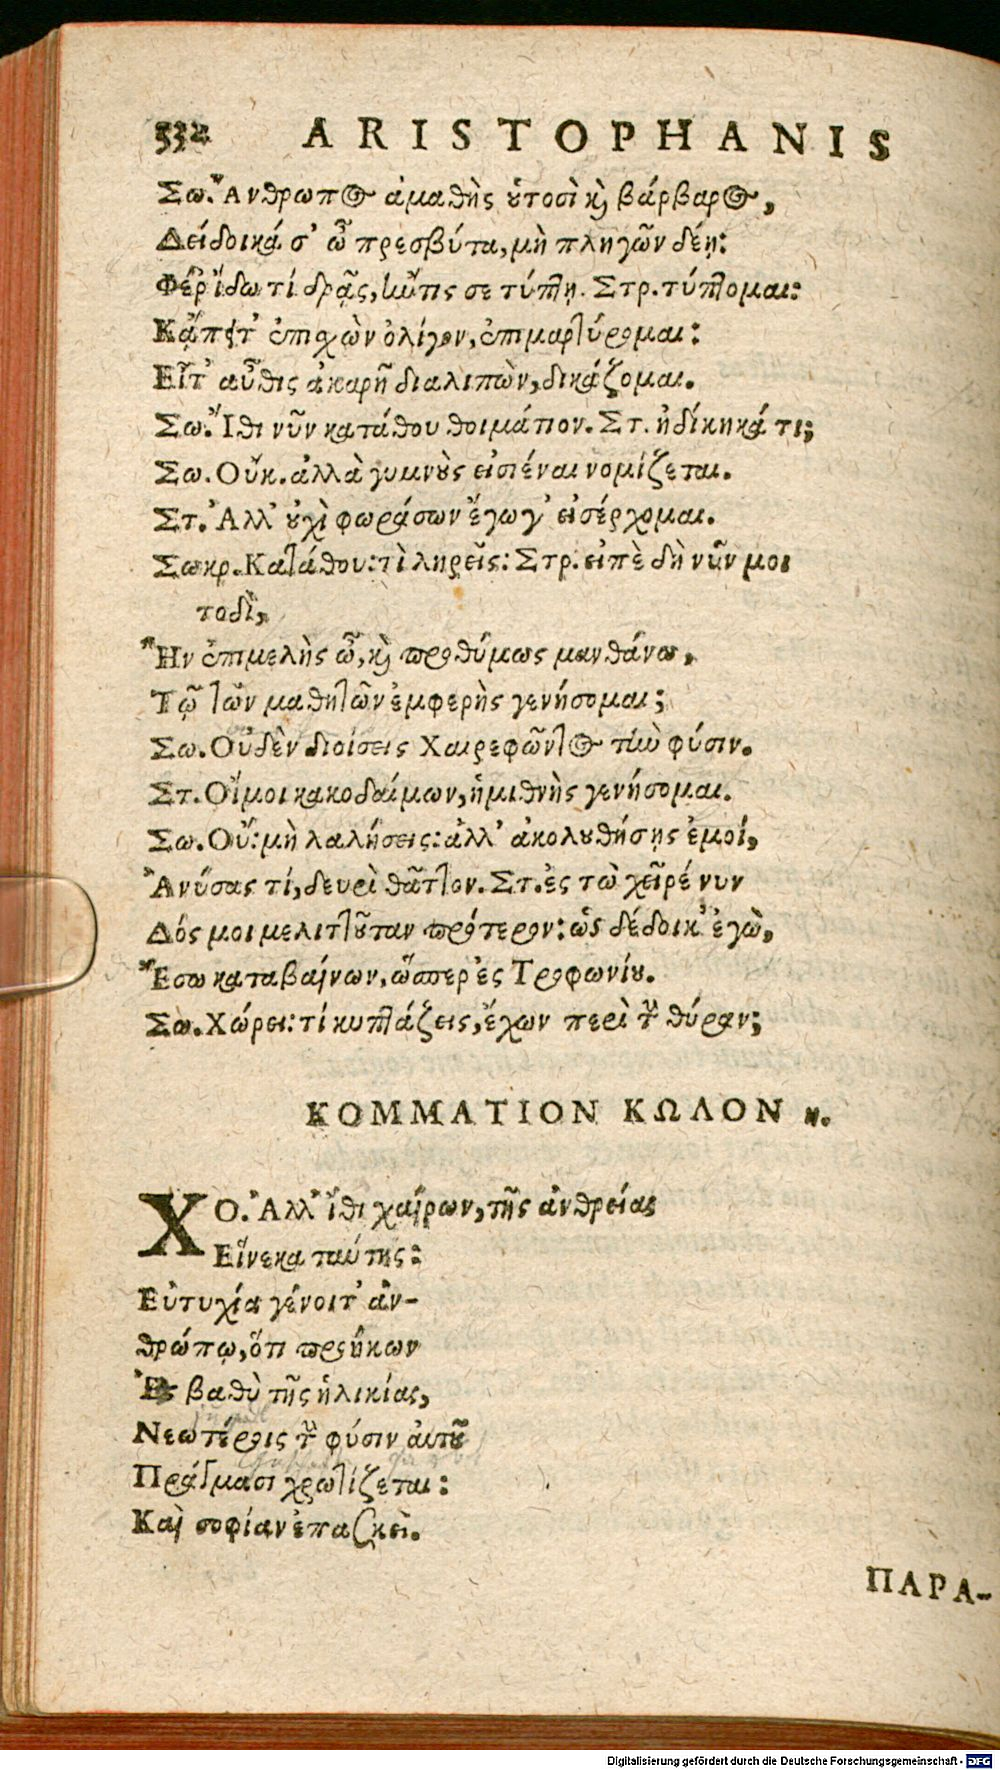 532 ARISTOPHANIS
Σω. Ἄνθρωπος ἀμαθὴς οὑτοσὶ καὶ βάρβαρος,
Δείδοικά σ' ὦ πρεσβύτα, μὴ πληγῶν δέῃ:
Φέρ' ἴδω τί δρᾷς, ἤν τις σε τύπτῃ. Στρ. τύπτομαι:
Κἄπειτ' ἐπισχὼν ὀλίγον, ἐπιμαρτύρομαι:
Εἶτ' αὖθις ἀκαρῆ διαλιπὼν, δικάζομαι.
Σω. Ἴθι νῦν κατάθου θοἰμάτιον. Στ. ἠδίκηκά τι;
Σω. Οὔκ. ἀλλὰ γυμνοὺς εἰσιέναι νομίζεται.
Στ. Ἀλλ' οὐχὶ φωράσων ἔγωγ' εἰσέρχομαι.
Σωκρ. Κατάθου: τὶ ληρεῖς: Στρ. εἰπὲ δὴ νῦν μοι
τοδὶ,
Ἢν ἐπιμελὴς ὦ, καὶ προθύμως μανθάνω,
Τῷ τῶν μαθητῶν ἐμφερὴς γενήσομαι;
Σω. Οὐδὲν διοίσεις Χαιρεφῶντος τὴν φύσιν.
Στ. Οἴμοι κακοδαίμων, ἡμιθνὴς γενήσομαι.
Σω. Οὔ: μὴ λαλήσεις: ἀλλ' ἀκολουθήσῃς ἐμοί,
Ἀνύσας τί, δευρὶ θᾶττον. Στ. ἐς τὼ χεῖρέ νυν
Δός μοι μελιτοῦταν πρότερον: ὡς δέδοικ' ἐγὼ,
Ἔσω καταβαίνων, ὥσπερ ἐς Τροφωνίου.
Σω. Χώρει: τί κυπτάζεις, ἔχων περὶ τὴν θύραν;
ΚΟΜΜΑΤΙΟΝ ΚΩΛΟΝ η.
ΧΟ. Ἀλλ' ἴθι χαίρων, τῆς ἀνδρείας
Εἵνεκα ταύτης:
Εὐτυχία γένοιτ' ἀν-
θρώπῳ, ὅτι προήκων
Ἐς βαθὺ τῆς ἡλικίας,
Νεωτέροις τὴν φύσιν αὑτοῦ
Πράγμασι χρωτίζεται:
Καὶ σοφίαν ἐπασκεῖ.
ΠΑΡΑ-
Digitalisierung gefördert durch die Deutsche Forschungsgemeinschaft - DFG